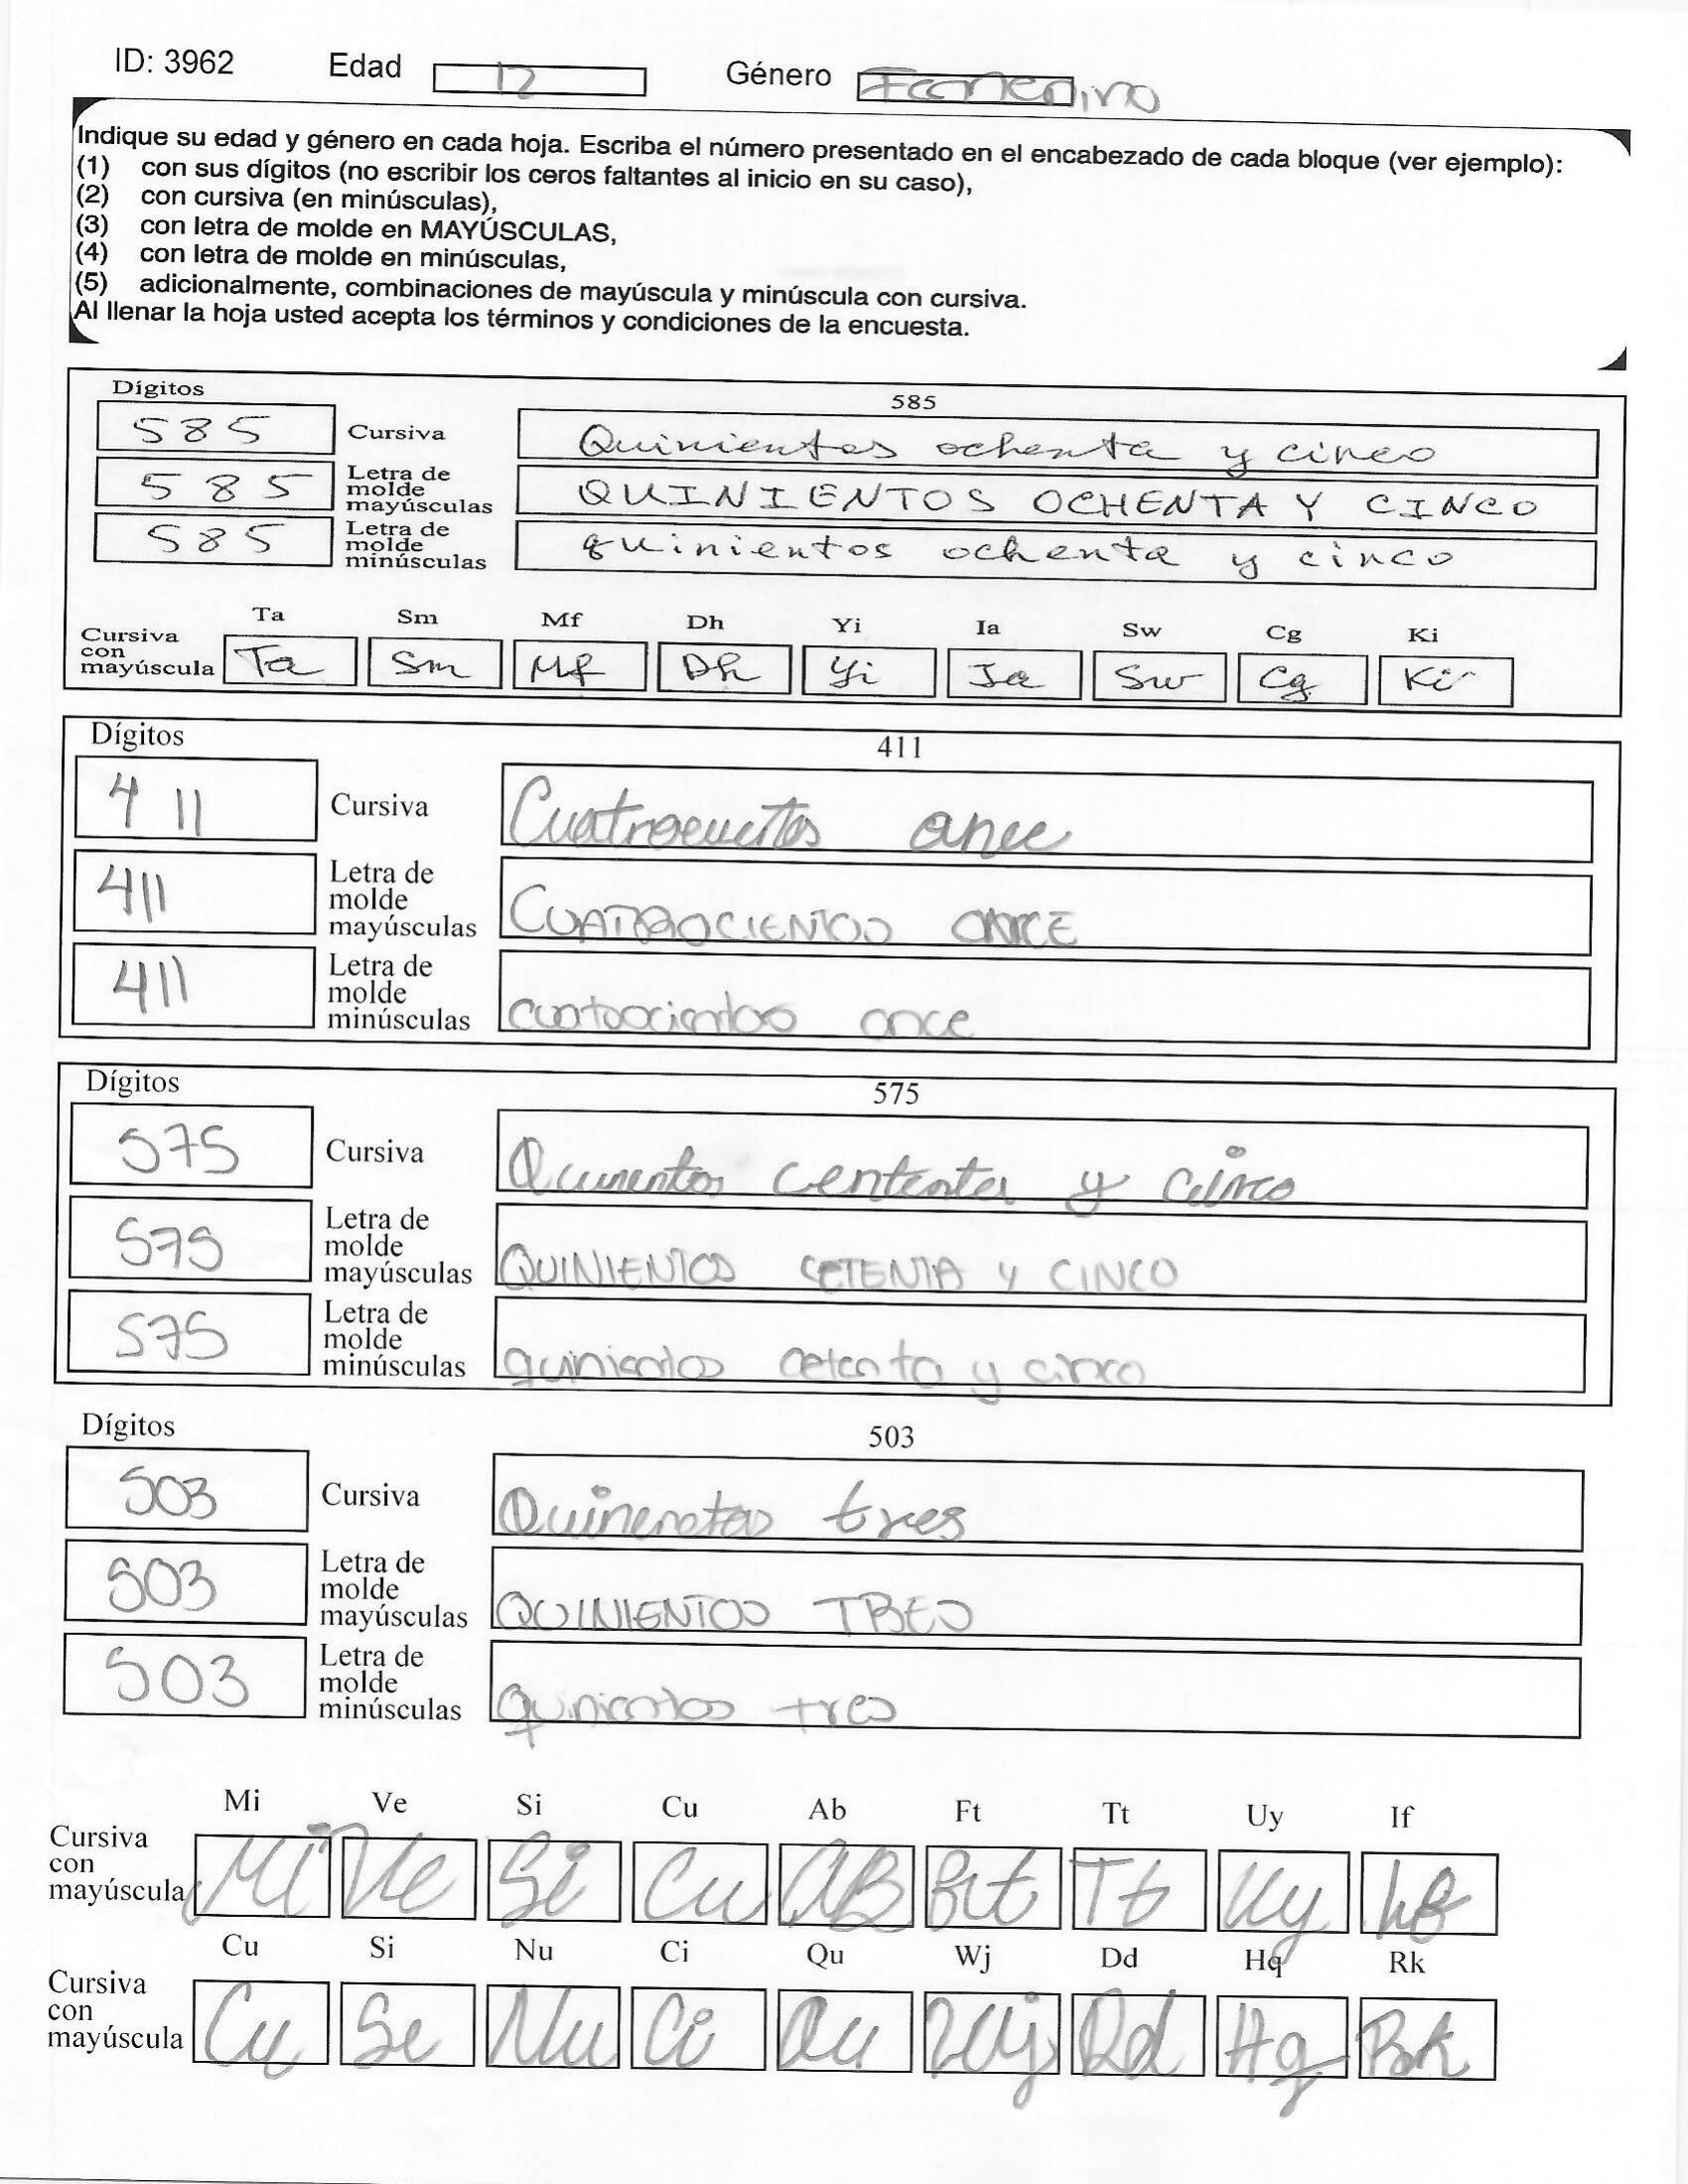 ID: 3962 Edad 12 Género Femenino
Indique su edad y género en cada hoja. Escriba el número presentado en el encabezado de cada bloque (ver ejemplo):
(1) con sus dígitos (no escribir los ceros faltantes al inicio en su caso),
(2) con cursiva (en minúsculas),
(3) con letra de molde en MAYÚSCULAS,
(4) con letra de molde en minúsculas,
(5) adicionalmente, combinaciones de mayúscula y minúscula con cursiva.
Al llenar la hoja usted acepta los términos y condiciones de la encuesta.
Dígitos 585
585 Cursiva Quinientos ochenta y cinco
585 Letra de molde mayúsculas QUINIENTOS OCHENTA Y CINCO
585 Letra de molde minúsculas quinientos ochenta y cinco
Ta Sm Mf Dh Yi Ia Sw Cg Ki
Cursiva con mayúscula Ta Sm Mf Dh Yi Ia Sw Cg Ki
Dígitos 411
411 Cursiva once
411 Letra de molde mayúsculas CUATROCIENTOS ONCE
411 Letra de molde minúsculas cuatrocientos once
Dígitos 575
575 Cursiva y cinco
575 Letra de molde mayúsculas QUINIENTOS CETENTA Y CINCO
575 Letra de molde minúsculas quinientos cetenta y cinco
Dígitos 503
503 Cursiva tres
503 Letra de molde mayúsculas QUINIENTOS TRES
503 Letra de molde minúsculas quinientos tres
Mi Ve Si Cu Ab Ft Tt Uy If
Cursiva con mayúscula Mi Ve Si Cu AB Ft Tt Uy If
Cu Si Nu Ci Qu Wj Dd Hq Rk
Cursiva con mayúscula Cu Si Nu Ci Qu Wj Dd Hq Rk